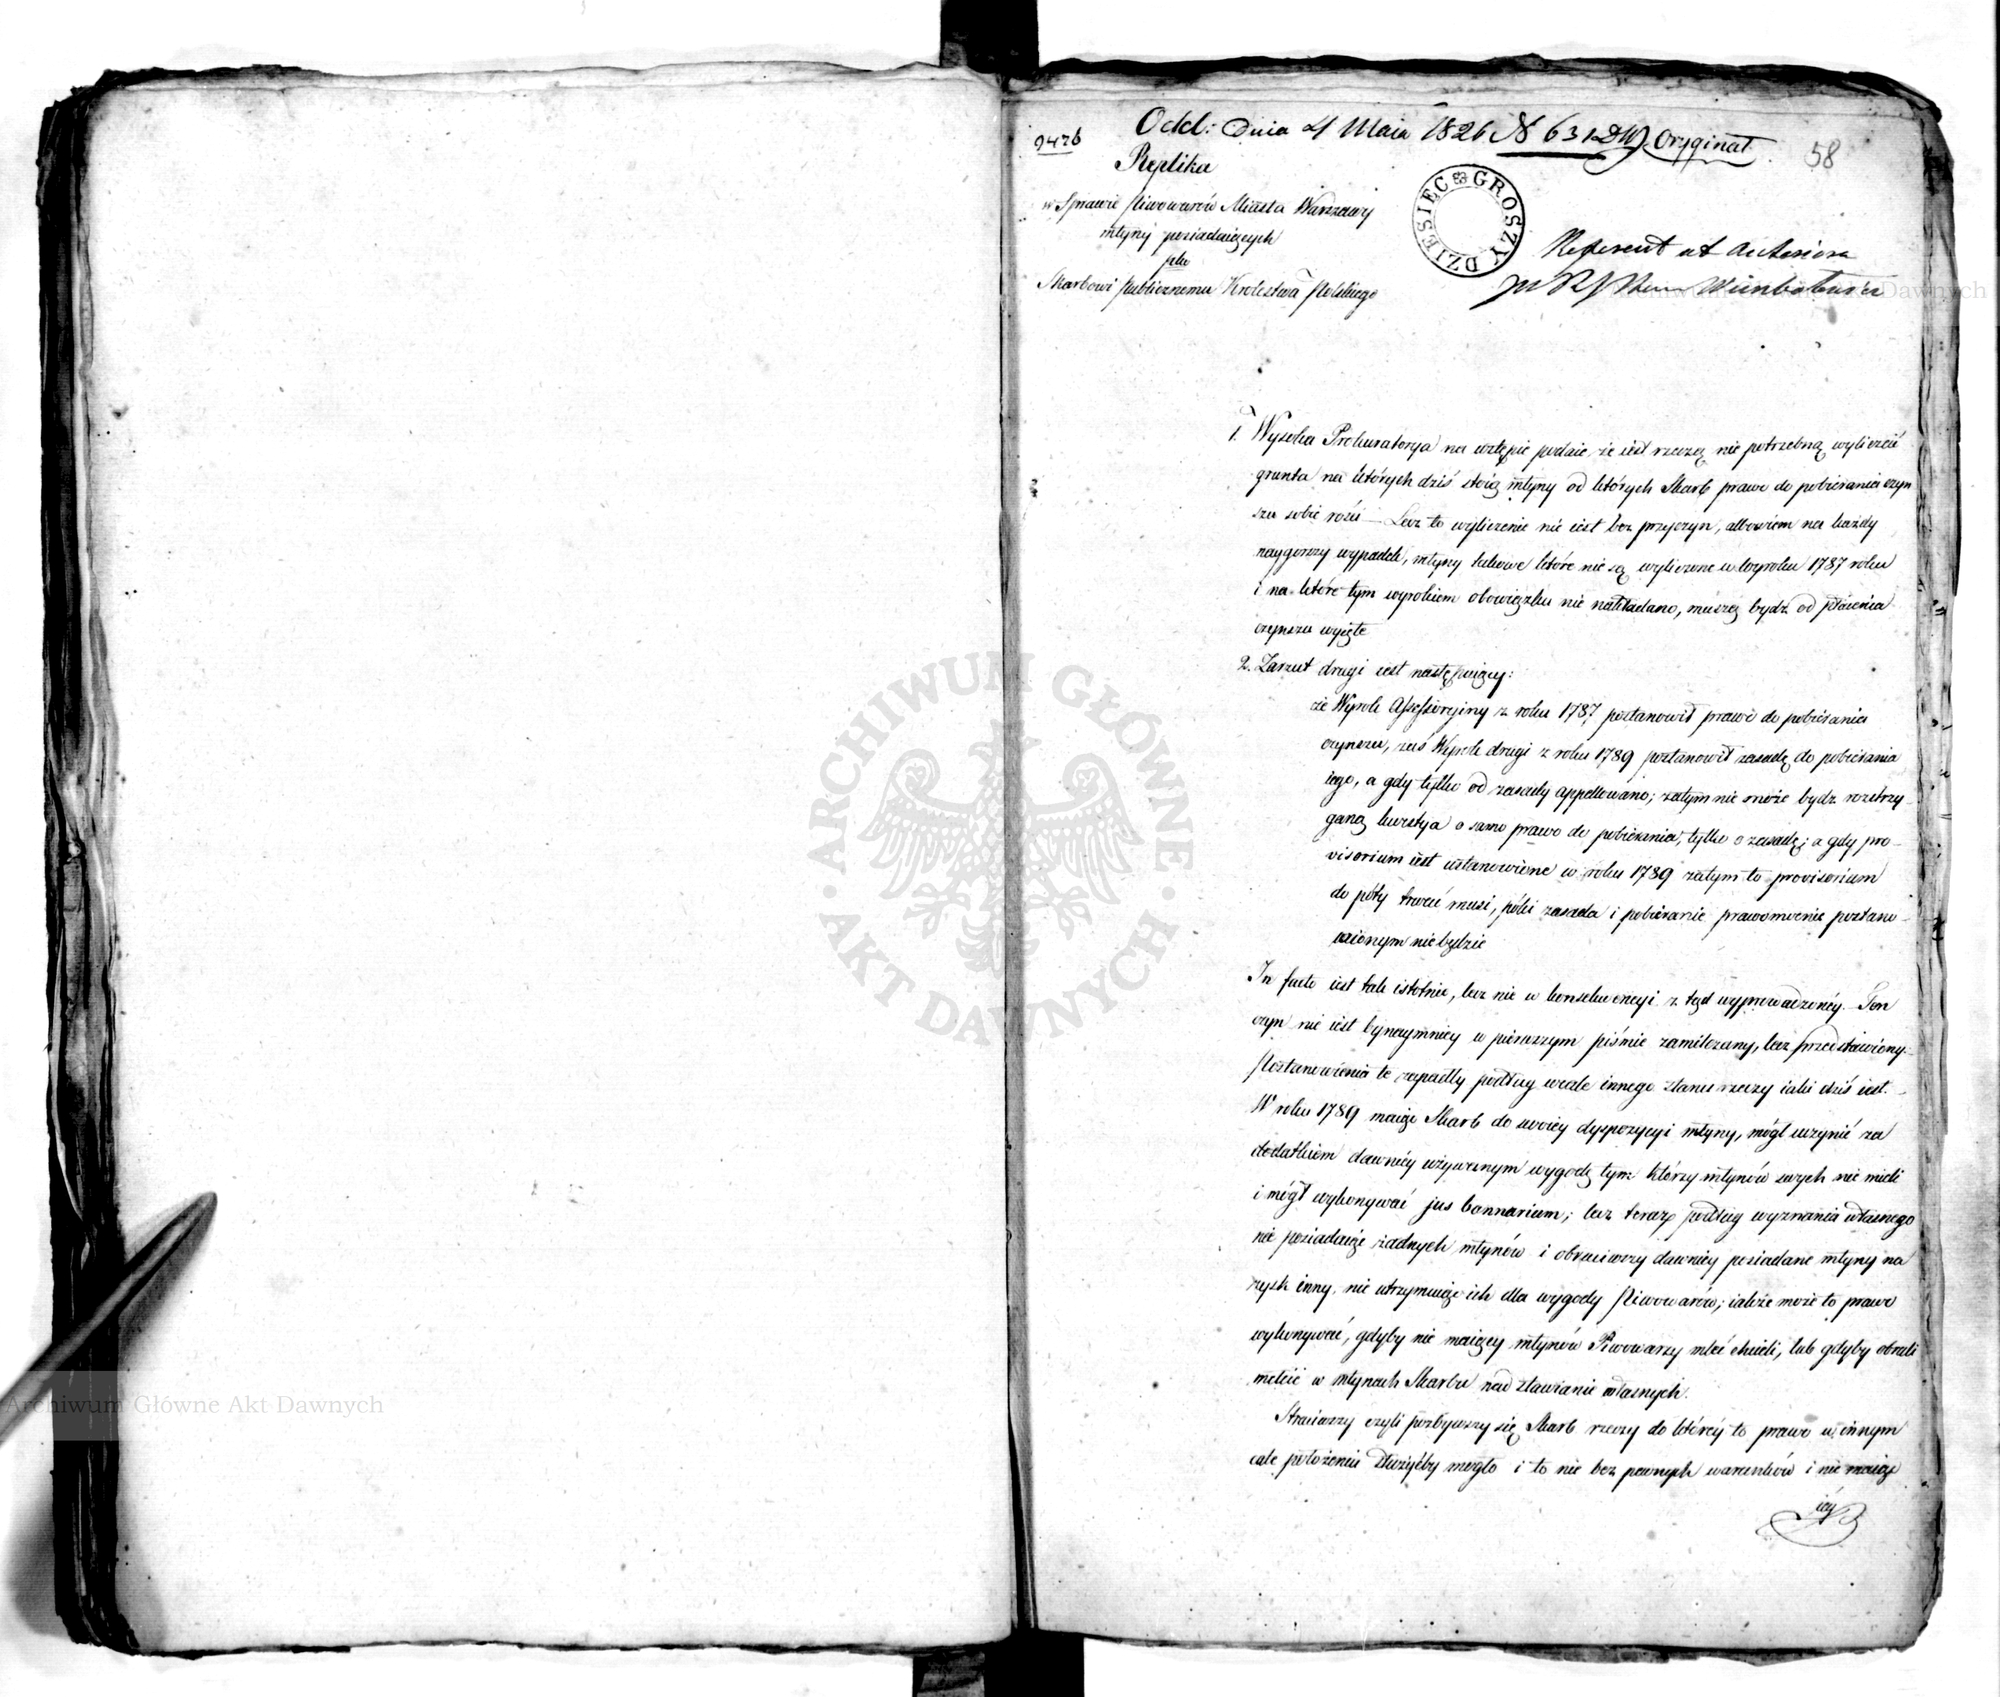 9476
Odd: Dnia 4 Maia 1826 N 631 DW. Oryginał
58
Replika
w Sprawie Piwowarów Miasta Warszawy
młyny posiadaiących
płu
Skarbowi Publicznemu Krolestwa Polskiego
DZIESIĘC GROSZY
Referent ut Anteriora
1. Wysoka Prokuratorya na wstępie podaie, że iest rzeczą nie potrzebną wyliczać
grunta na których dziś stoią młyny od których Skarb prawo do pobierania czyn
szu sobie rości — Lecz to wyliczenie nie iest bez przyczyn, albowiem na każdy
naygorszy wypadek, młyny takowe które nie są wyliczone w Wyroku 1787 roku
i na które tym wyrokiem obowiązku nie nakładano, muszą bydź od płacenia
czynszu wyięte
2. Zarzut drugi iest następuiący:
że Wyrok Assessoryiny z roku 1787 postanowił prawo do pobierania
czynszu, zaś Wyrok drugi z roku 1789 postanowił zasadę do pobierania
iego, a gdy tylko od zasady appellowano; zatym nie może bydź roztrzy-
ganą kwestya o samo prawo do pobierania, tylko o zasadę; a gdy pro-
visorium iest ustanowione w roku 1789 zatym to provisorium
do póty trwać musi, póki zasada i pobieranie prawomocnie postano-
wionym niebędzie
In facto iest tak istotnie, lecz nie w konsekwencyi z tąd wyprowadzonéy. Ten
czyn nie iest bynaymniey w pierwszym piśmie zamilczany, lecz przedstawiony.
Postanowienia te zapadły podług wcale innego stanu rzeczy iaki dziś iest.
W roku 1789 maiąc Skarb do swoiey dyspozycyi młyny, mógł uczynić za
dodatkiem dawniéy używanym wygodę tym którzy młynów swych nie mieli
i mógł wykonywać jus bannarium; lecz teraz podług wyznania własnego
nie posiadaiąc żadnych młynów i obróciwszy dawniey posiadane młyny na
zysk inny, nie utrzymuiąc ich dla wygody Piwowarów; iakże może to prawo
wykonywać, gdyby nie maiący młynów Piwowarzy mleć chcieli, lub gdyby obrali
mełcie w młynach Skarbu nad stawianie własnych.
Straciwszy czyli pozbywszy się Skarb rzeczy do któréy to prawo w innym
cale położeniu służyćby mogło i to nie bez pewnych warunków i nie maiąc
iéy
ARCHIWUM GŁÓWNE AKT DAWNYCH
Archiwum Główne Akt Dawnych
Archiwum Główne Akt Dawnych